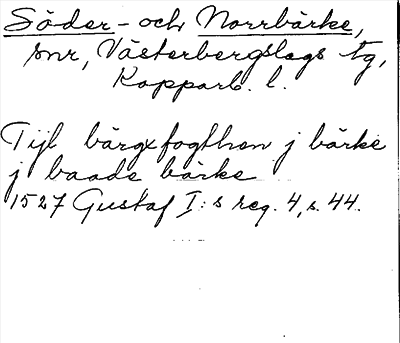 Söder- och Norrbärke,
snr, Västerbergslags tg,
Kopparb. l.
Tijl bärgxfogthen j bärke
j baade bärke
1527 Gustaf I:s reg. 4, s. 44.